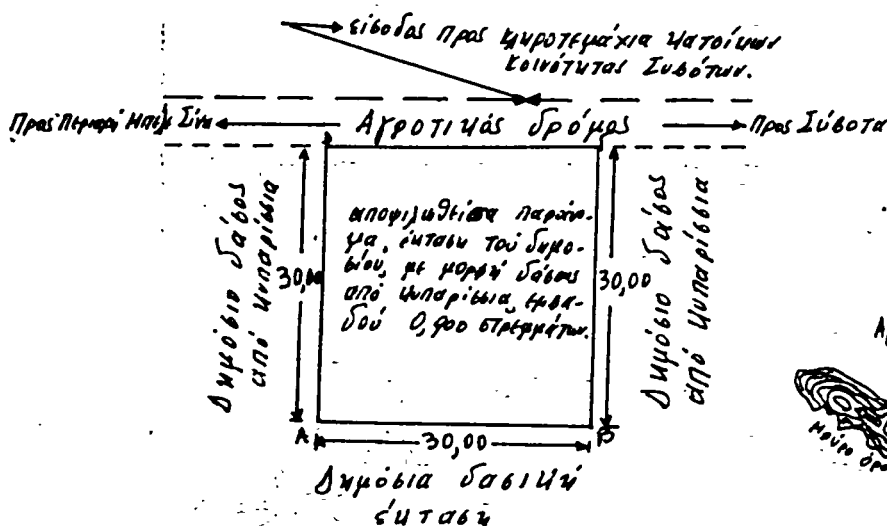 είσοδος προς κληροτεμάχια κατοίκων
Κοινότητας Συβότων.
Προς Περιοχή Μπέλ Σίνα
Αγροτικός δρόμος
Προς Σύβοτα
Δημόσιο δάσος
από κυπαρίσσια
30,00
αποψιλωθείσα παράνο-
μα, έκταση τού δημο-
σίου, με μορφή δάσους
από κυπαρίσσια, εμβα-
δού 0,900 στρεμμάτων.
30,00
Δημόσιο δάσος
από κυπαρίσσια
Α
30,00
Β
Δημόσια δασική
έκταση
Μαύρο όρο